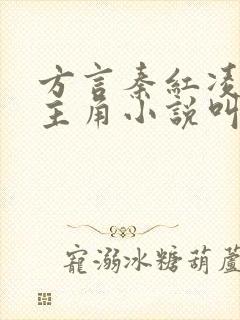 方言秦红凌
主角小說叫
寵溺冰糖葫蘆